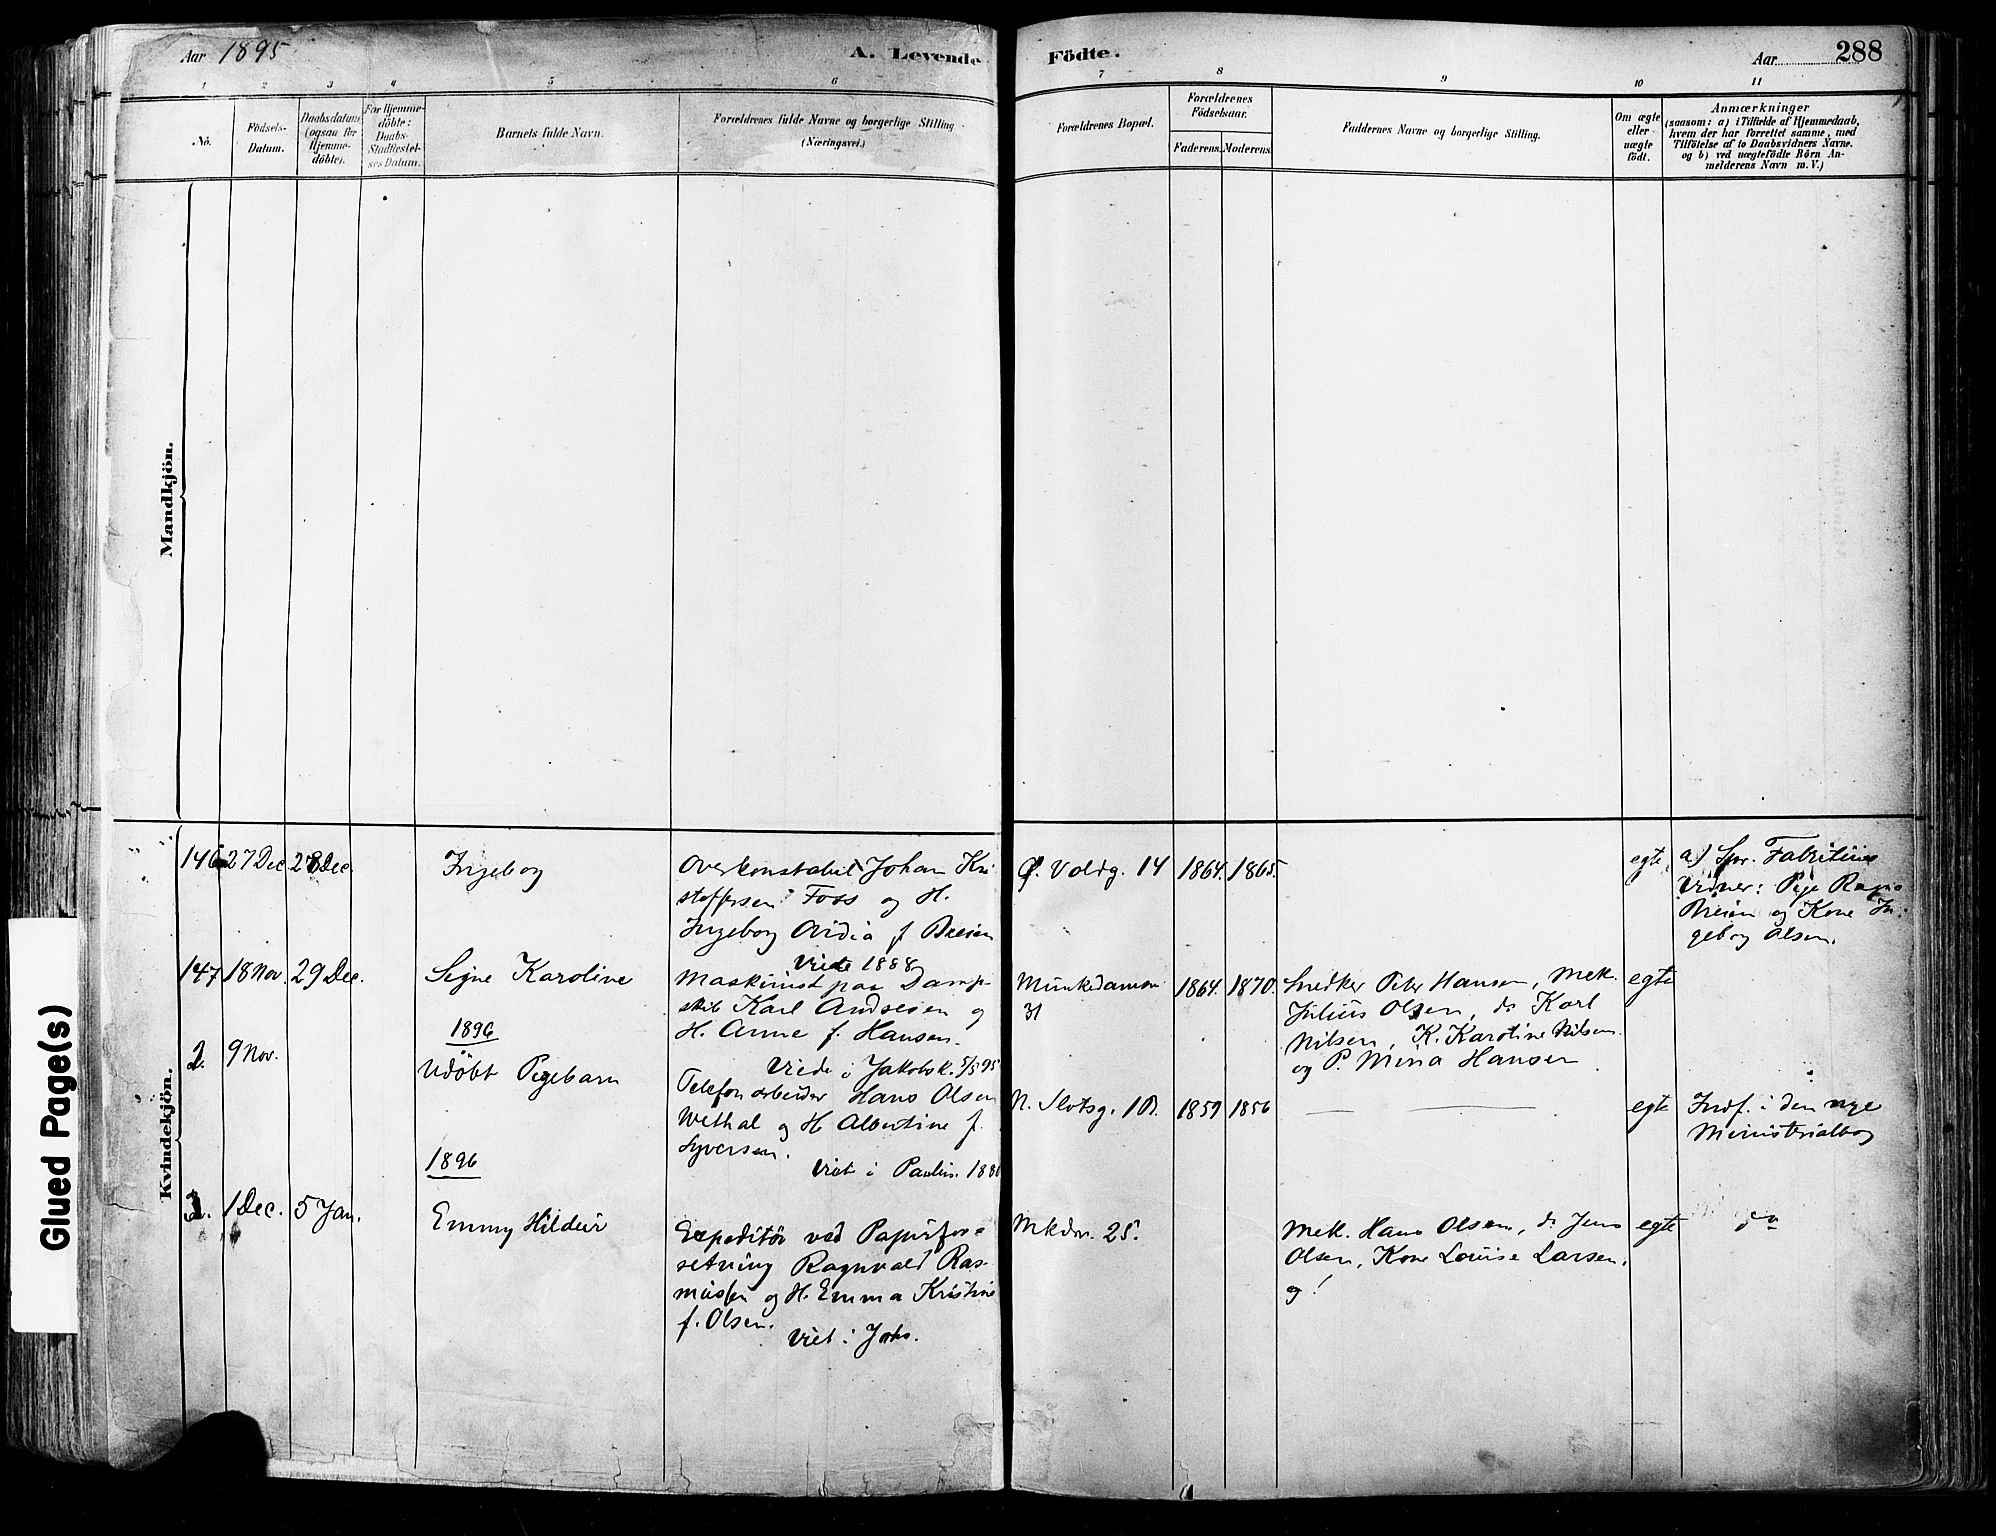 Aar 1895
A. Levende Födte.
Aar 288
1 2 3 4 5 6 7 8 9 10 11
No.
Födsels-
Datum.
Daabsdatum
(ogsaa för
Hjemme-
döbte).
For Hjemme-
döbte:
Daabs-
Stadfæstel-
ses Datum.
Barnets fulde Navn.
Forældrenes fulde Navne og borgerlige Stilling
(Næringsvei.)
Forældrenes Bopæl.
Forældrenes
Födselsaar.
Faderens. Moderens.
Faddernes Navne og borgerlige Stilling.
Om ægte
eller
uægte
födt.
Anmærkninger
(saasom: a) i Tilfælde af Hjemmedaab,
hvem der har forrettet samme, med
Tilföielse af to Daabsvidners Navne.
og b) ved uægtefödte Börn An-
melderens Navn m. V.)
Mandkjön.
Kvindekjön.
Glued Page(s)
146 27 Dec 28 Dec.
Ingeborg
Overkonstabel Johan Kri
stoffersen Foss og H.
Ingeborg Ovidia f Breien
Viet 1888
Ø. Voldg. 14
1864. 1865.
egte
a) Spr. Fabritius
Vidner: Pige Ragna
Breien og Kone In
geborg Olsen.
147 18 Nov. 29 Dec.
Signe Karoline
Maskinist paa Damp-
skib Karl Andresen og
H. Anne f. Hansen.
Viede i Jakobsk. 5/5 95
Munkedamsv.
31
1864. 1870.
Snedker Peter Hansen, Mek.
Julius Olsen, do Karl
Nilsen, K. Karoline Nilsen
og P. Mina Hansen
egte
1896
2. 9 Nov.
Udöbt Pigebarn
Telefonarbeider Hans Olsen
Wethal og H. Albertine f.
Syversen.
Viet i Paulus. 188
N. Slotsg. 1B.
1859 1856
egte
Indf. i den nye
Ministerialbog
1896
3. 1 Dec. 5 Jan.
Emmy Hildur
Expeditör ved Papirfor-
retning Ragnvald Ras-
mussen og H. Emma Kristine
f. Olsen.
Viet i Jaks.
Mkdv. 25.
Mek. Hans Olsen, do Jens
Olsen, Kone Louise Larsen,
og!
egte
do